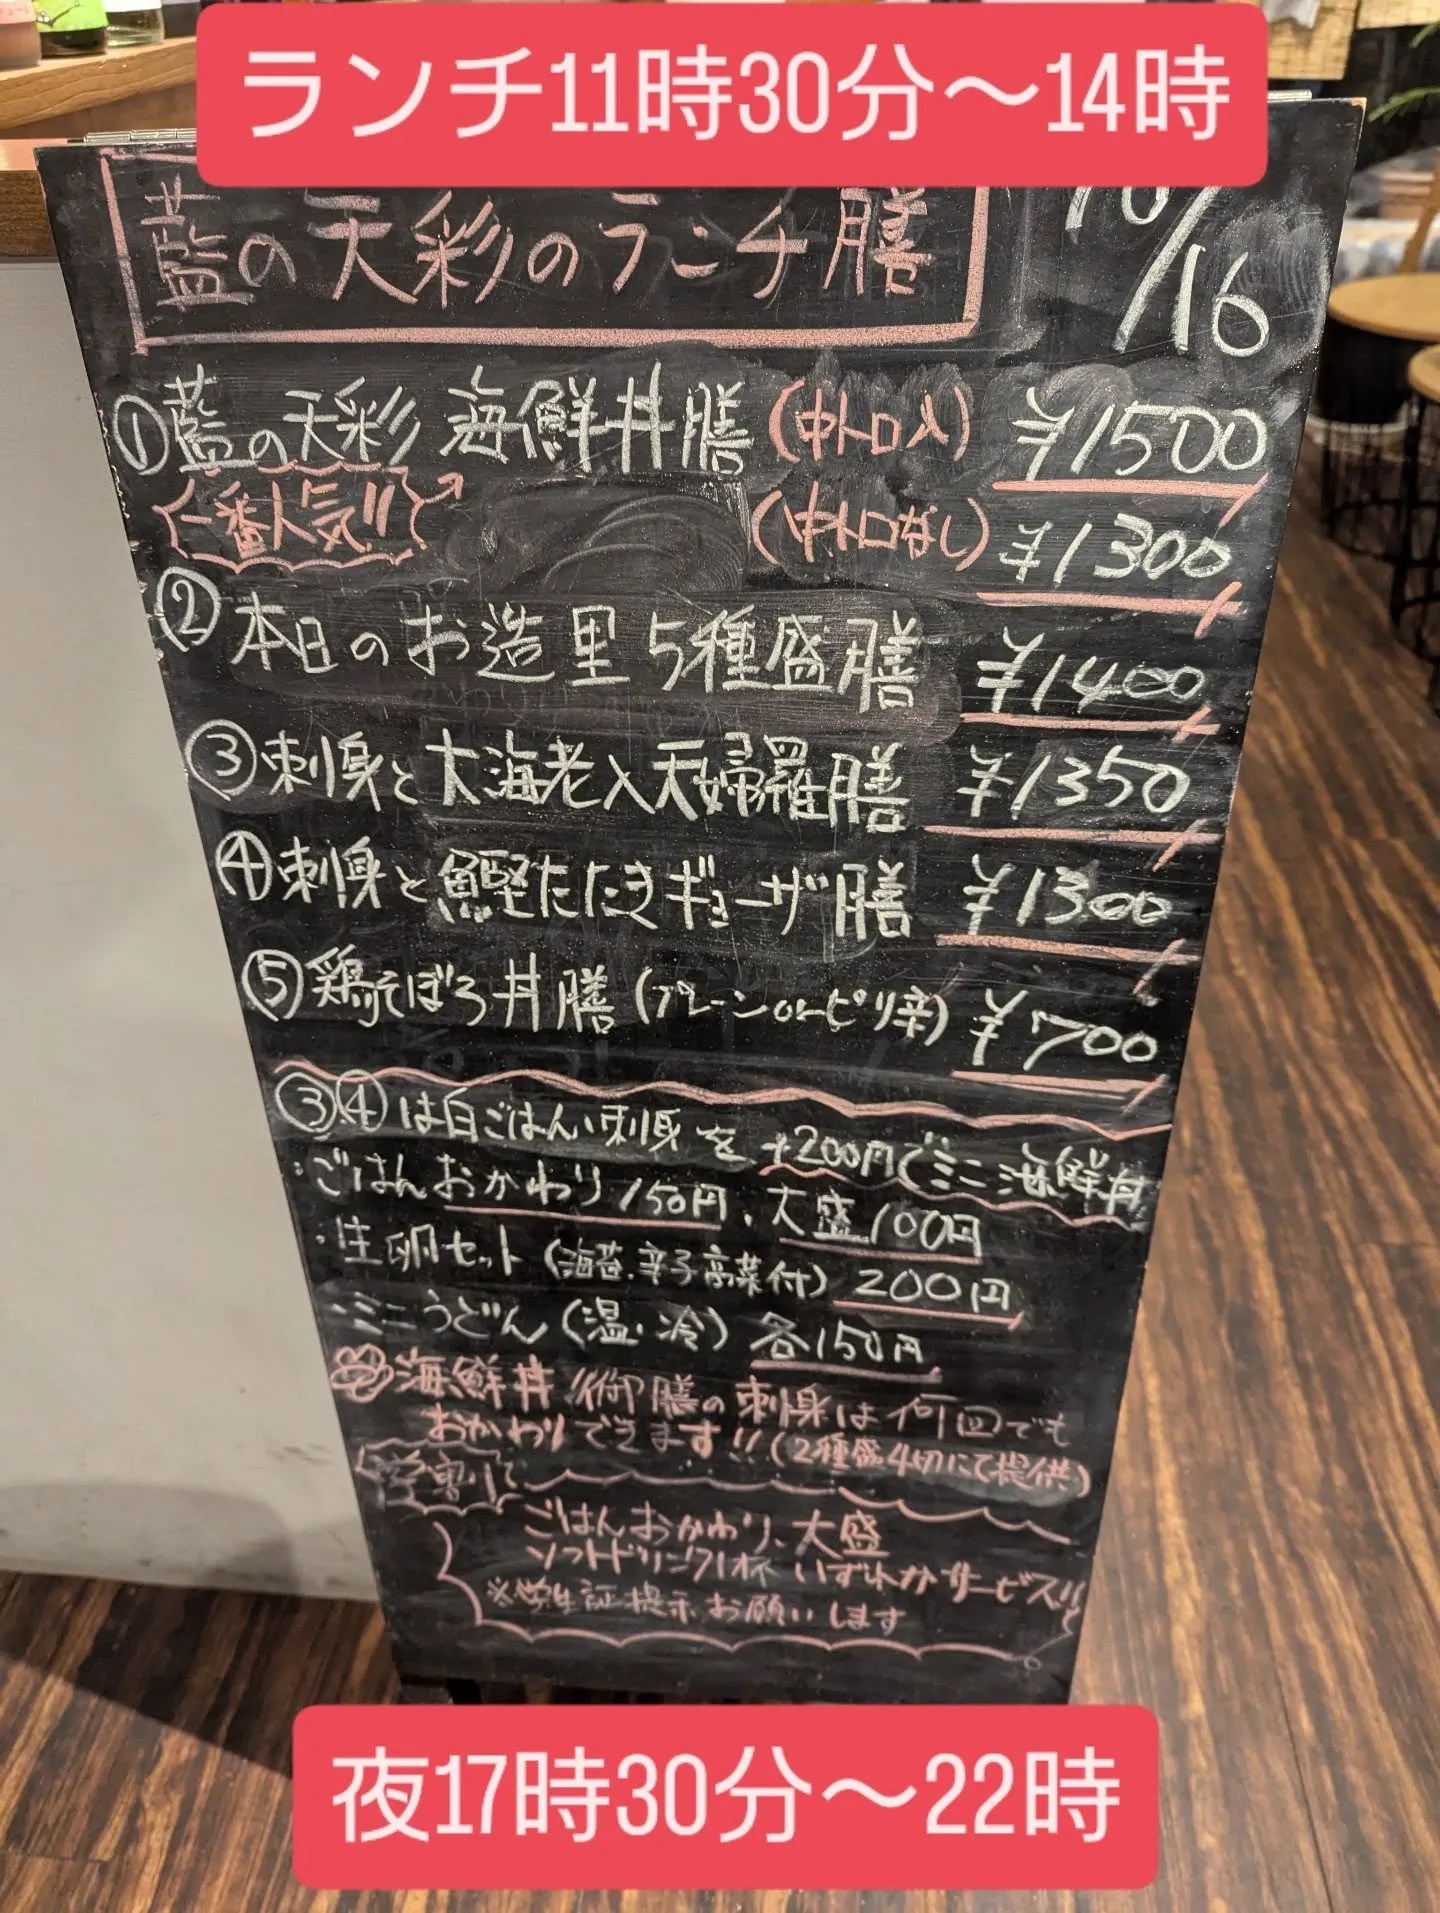 ランチ11時30分〜14時
藍の天彩のランチ膳
10/16
①藍の天彩 海鮮丼膳(中トロ入) ¥1500
一番人気!! (中トロなし) ¥1300
②本日のお造里5種盛膳 ¥1400
③刺身と大海老入天婦羅膳 ¥1350
④刺身と鰹たたきギョーザ膳 ¥1300
⑤鶏そぼろ丼膳(プレーンorピリ辛) ¥700
③④は白ごはん、刺身を+200円でミニ海鮮丼
・ごはんおかわり150円、大盛100円
・生卵セット(海苔、辛子高菜付)200円
・ミニうどん(温・冷)各150円
海鮮丼、御膳の刺身は何回でも
おかわりできます!!(2種盛4切にて提供)
学割
ごはんおかわり、大盛
ソフトドリンク1杯 いずれかサービス!!
※学生証提示お願いします
夜17時30分〜22時